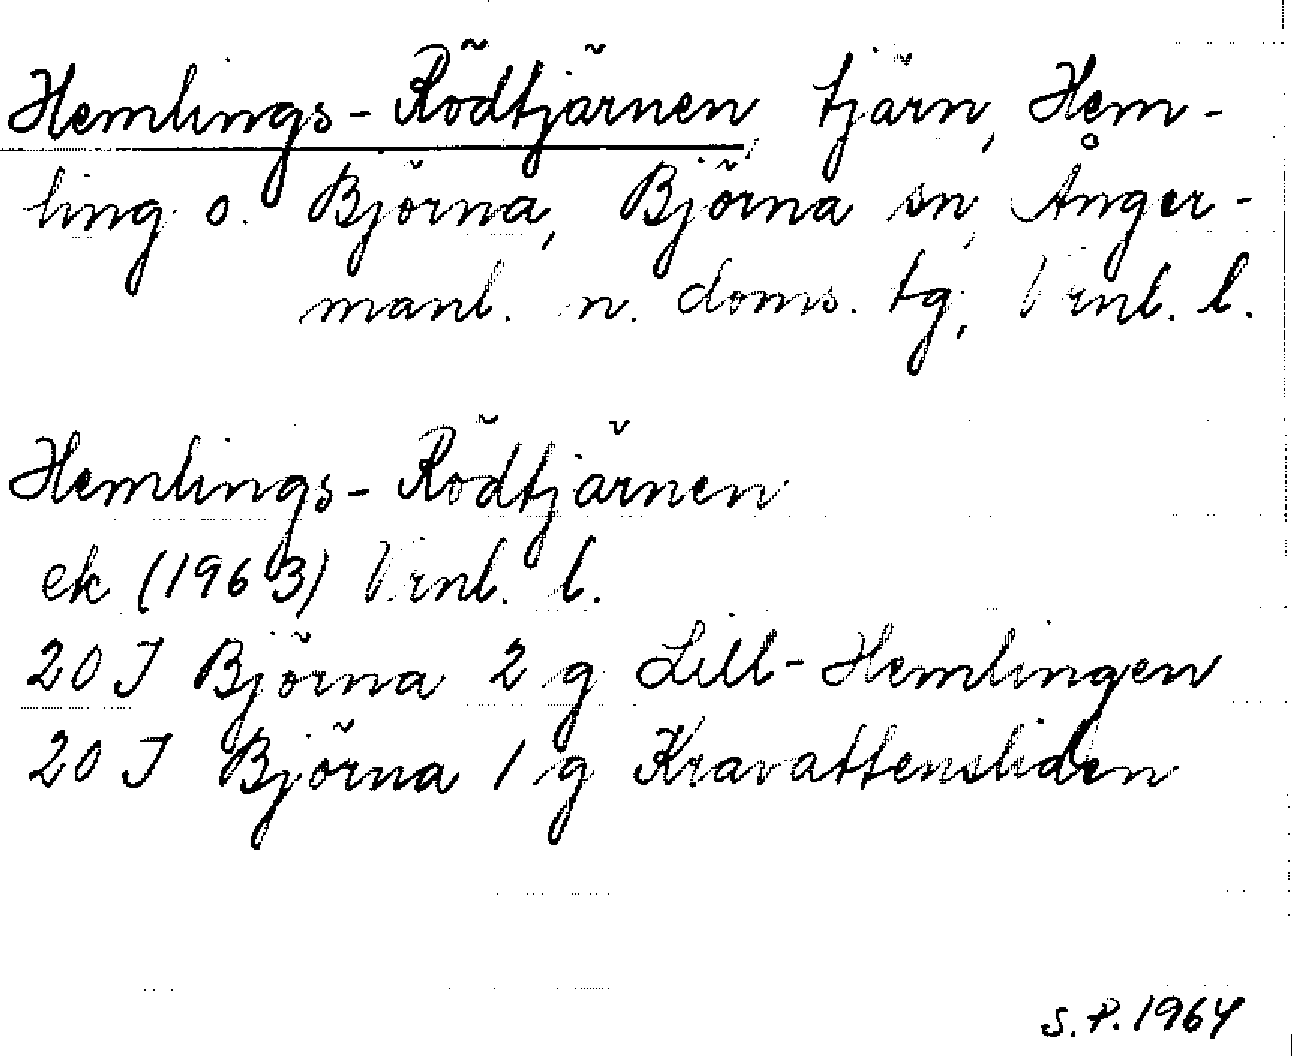 Hemlings-Rödtjärnen, tjärn, Hem-
ling o. Björna, Björna sn, Ånger-
manl. n. doms. tg, Vrnl. l.
Hemlings-Rödtjärnen
ek (1963) Vrnl. l.
20 J Björna 2 g Lill-Hemlingen
20 J Björna 1 g Kravattensliden
S.P. 1964